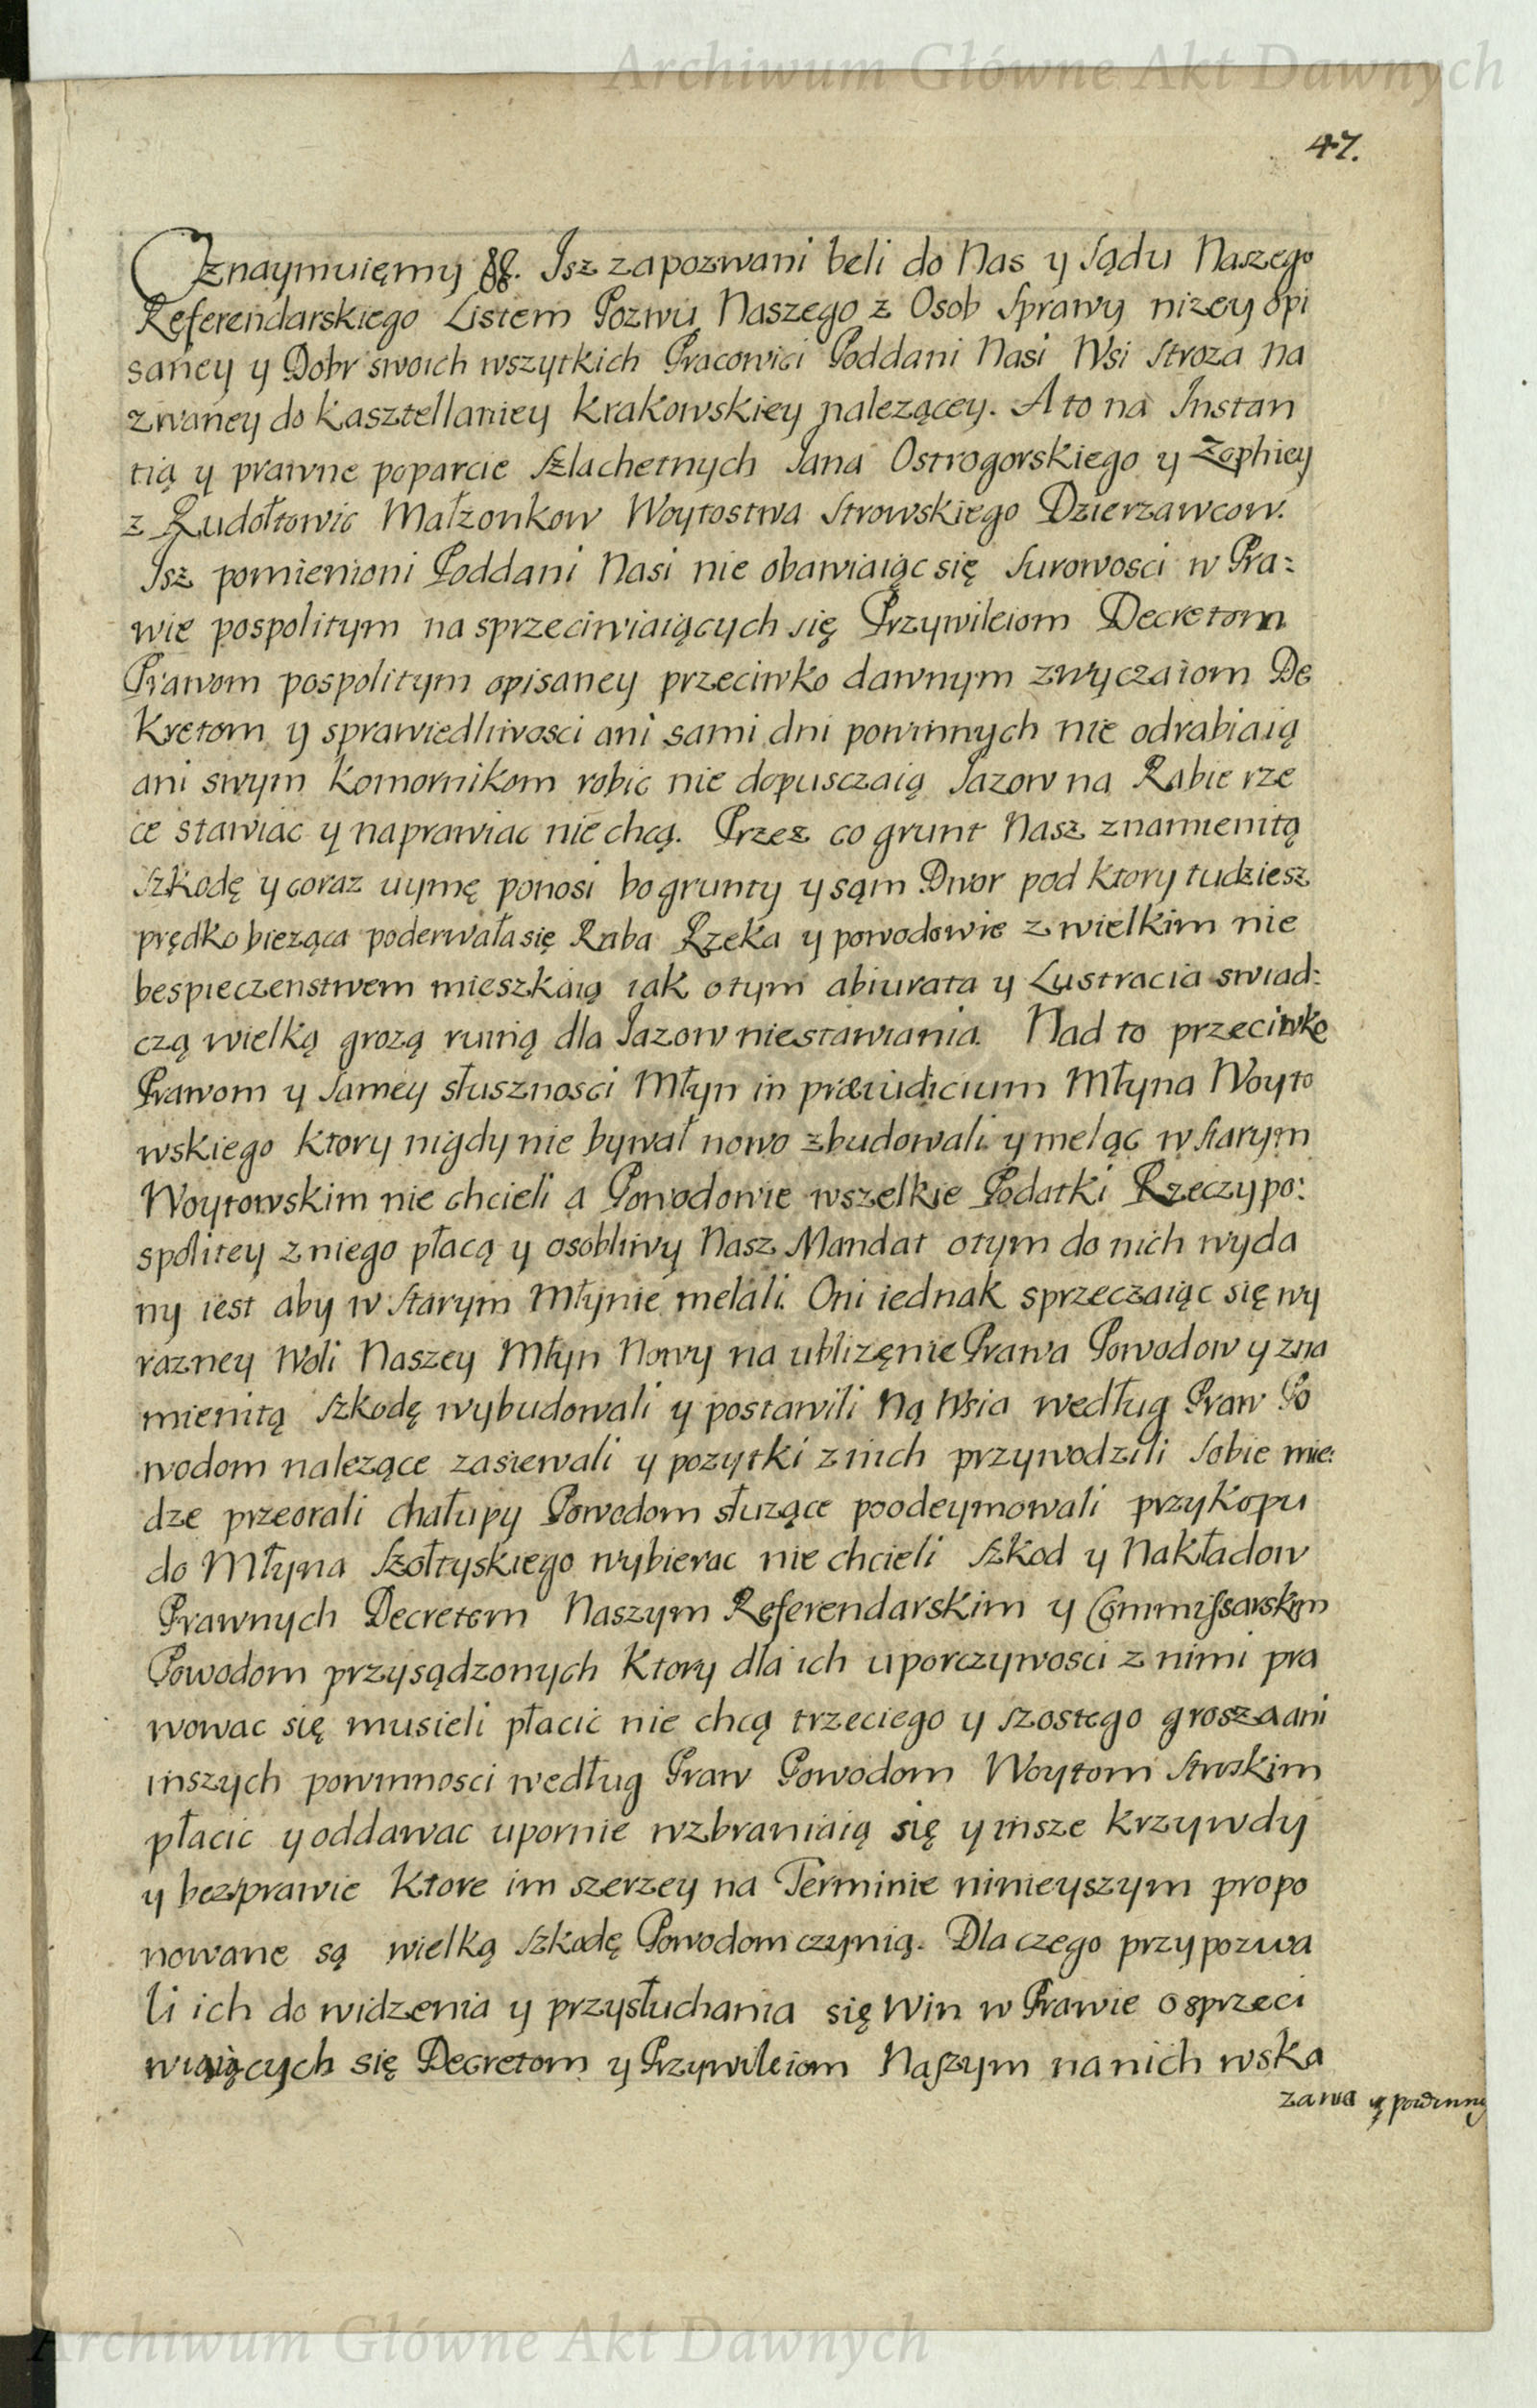 Archiwum Główne Akt Dawnych
47.
Oznaymuięmy &&. Jsz zapozwani beli do Nas y sądu Naszego
Referendarskiego Listem Pozwu Naszego z Osob sprawy nizey opi
saney y Dobr swoich wszytkich Pracowici Poddani Nasi Wsi Stroza na
zwaney do kasztellaniey krakowskiey nalezącey. A to na Instan
tią y prawne poparcie szlachetnych Jana Ostrogorskiego y Zophiey
z Rudołtowic Małzonkow Woytostwa Strowskiego Dzierzawcow.
Jsz pomienioni Poddani Nasi nie obawiaiąc się surowosci w Pra:
wie pospolitym na sprzeciwiaiących się Przywileiom Decretom
Prawom pospolitym opisaney przeciwko dawnym zwyczaiom De
kretom y sprawiedliwosci ani sami dni powinnych nie odrabiaią
ani swym komornikom robic nie dopusczaią Jazow na Rabie rze
ce stawiac y naprawiac nie chcą. Przez co grunt Nasz znamienitą
szkodę y coraz uymę ponosi bo grunty y sąm Dwor pod ktory tudziesz
prędko bieząca poderwała się Raba Rzeka y powodowie z wielkim nie
bespieczenstwem mieszkaią iak o tym abiurata y Lustracia swiad:
czą wielką grozą ruiną dla Jazow niestawiania. Nad to przeciwko
Prawom y samey słusznosci Młyn in præiudicium Młyna Woyto
wskiego ktory nigdy nie bywał nowo zbudowali y meląc w starym
Woytowskim nie chcieli a Powodowie wszelkie Podatki Rzeczypo:
spolitey z niego płacą y osobliwy Nasz Mandat o tym do nich wyda
ny iest aby w starym Młynie melali. Oni iednak sprzeczaiąc się wy
razney Woli Naszey Młyn Nowy na ublizęnie Prawa Powodow y zna
mienitą szkodę wybudowali y postawili Ną Wsia według Praw Po
wodom nalezące zasiewali y pozytki z nich przywodzili sobie mie:
dze przeorali chałupy Powodom słuzące poodeymowali przykopu
do Młyna szołtyskiego wybierac nie chcieli szkod y Nakładow
Prawnych Decretem Naszym Referendarskim y Commissarskim
Powodom przysądzonych ktory dla ich uporczywosci z nimi pra
wowac się musieli płacic nie chcą trzeciego y szostego grosza ani
inszych powinnosci według Praw Powodom Woytom
płacic y oddawac upornie wzbraniaią się y insze krzywdy
y bezprawie ktore im szerzey na Terminie ninieyszym propo
nowane są wielką szkodę Powodom czynią. Dla czego przypozwa
li ich do widzenia y przysłuchania się Win w Prawie o sprzeci
wiaiących się Decretom y Przywileiom Naszym na nich wska
zawa y powinny
Archiwum Główne Akt Dawnych